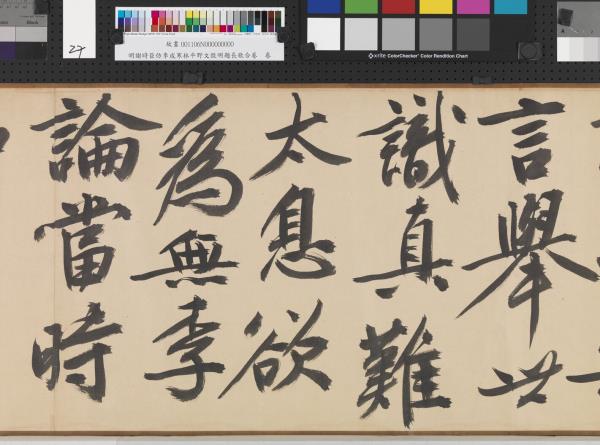 27
故畫001106N000000000
明謝時臣仿李成寒林平野文徵明題長歌合卷 卷
x-rite ColorChecker Color Rendition Chart
言舉世
識真難
太息欲
為無李
論當時